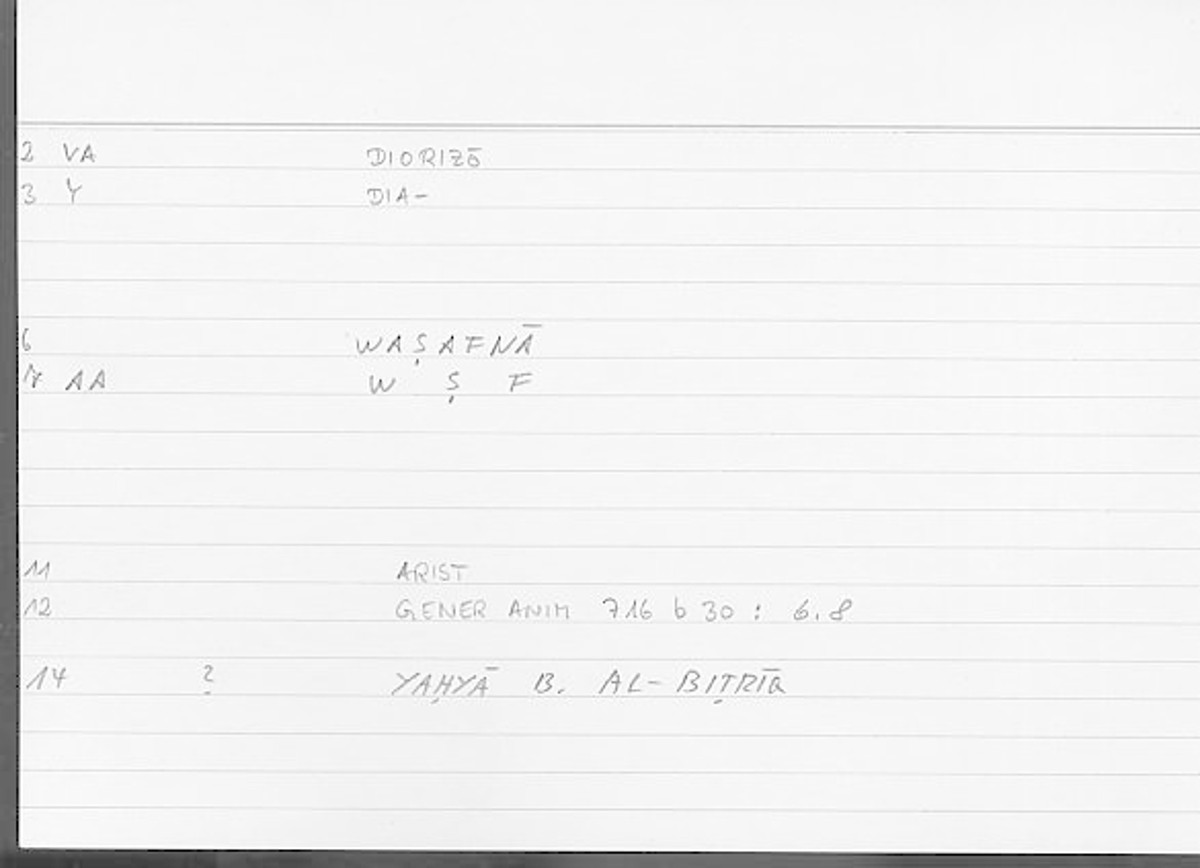 2 VA DIORIZŌ
3 Y DIA-
6 WAṢAFNĀ
7 AA W Ṣ F
11 ARIST
12 GENER ANIM 716 b 30 : 6.8
14 ? YAḤYĀ B. AL-BIṬRĪQ